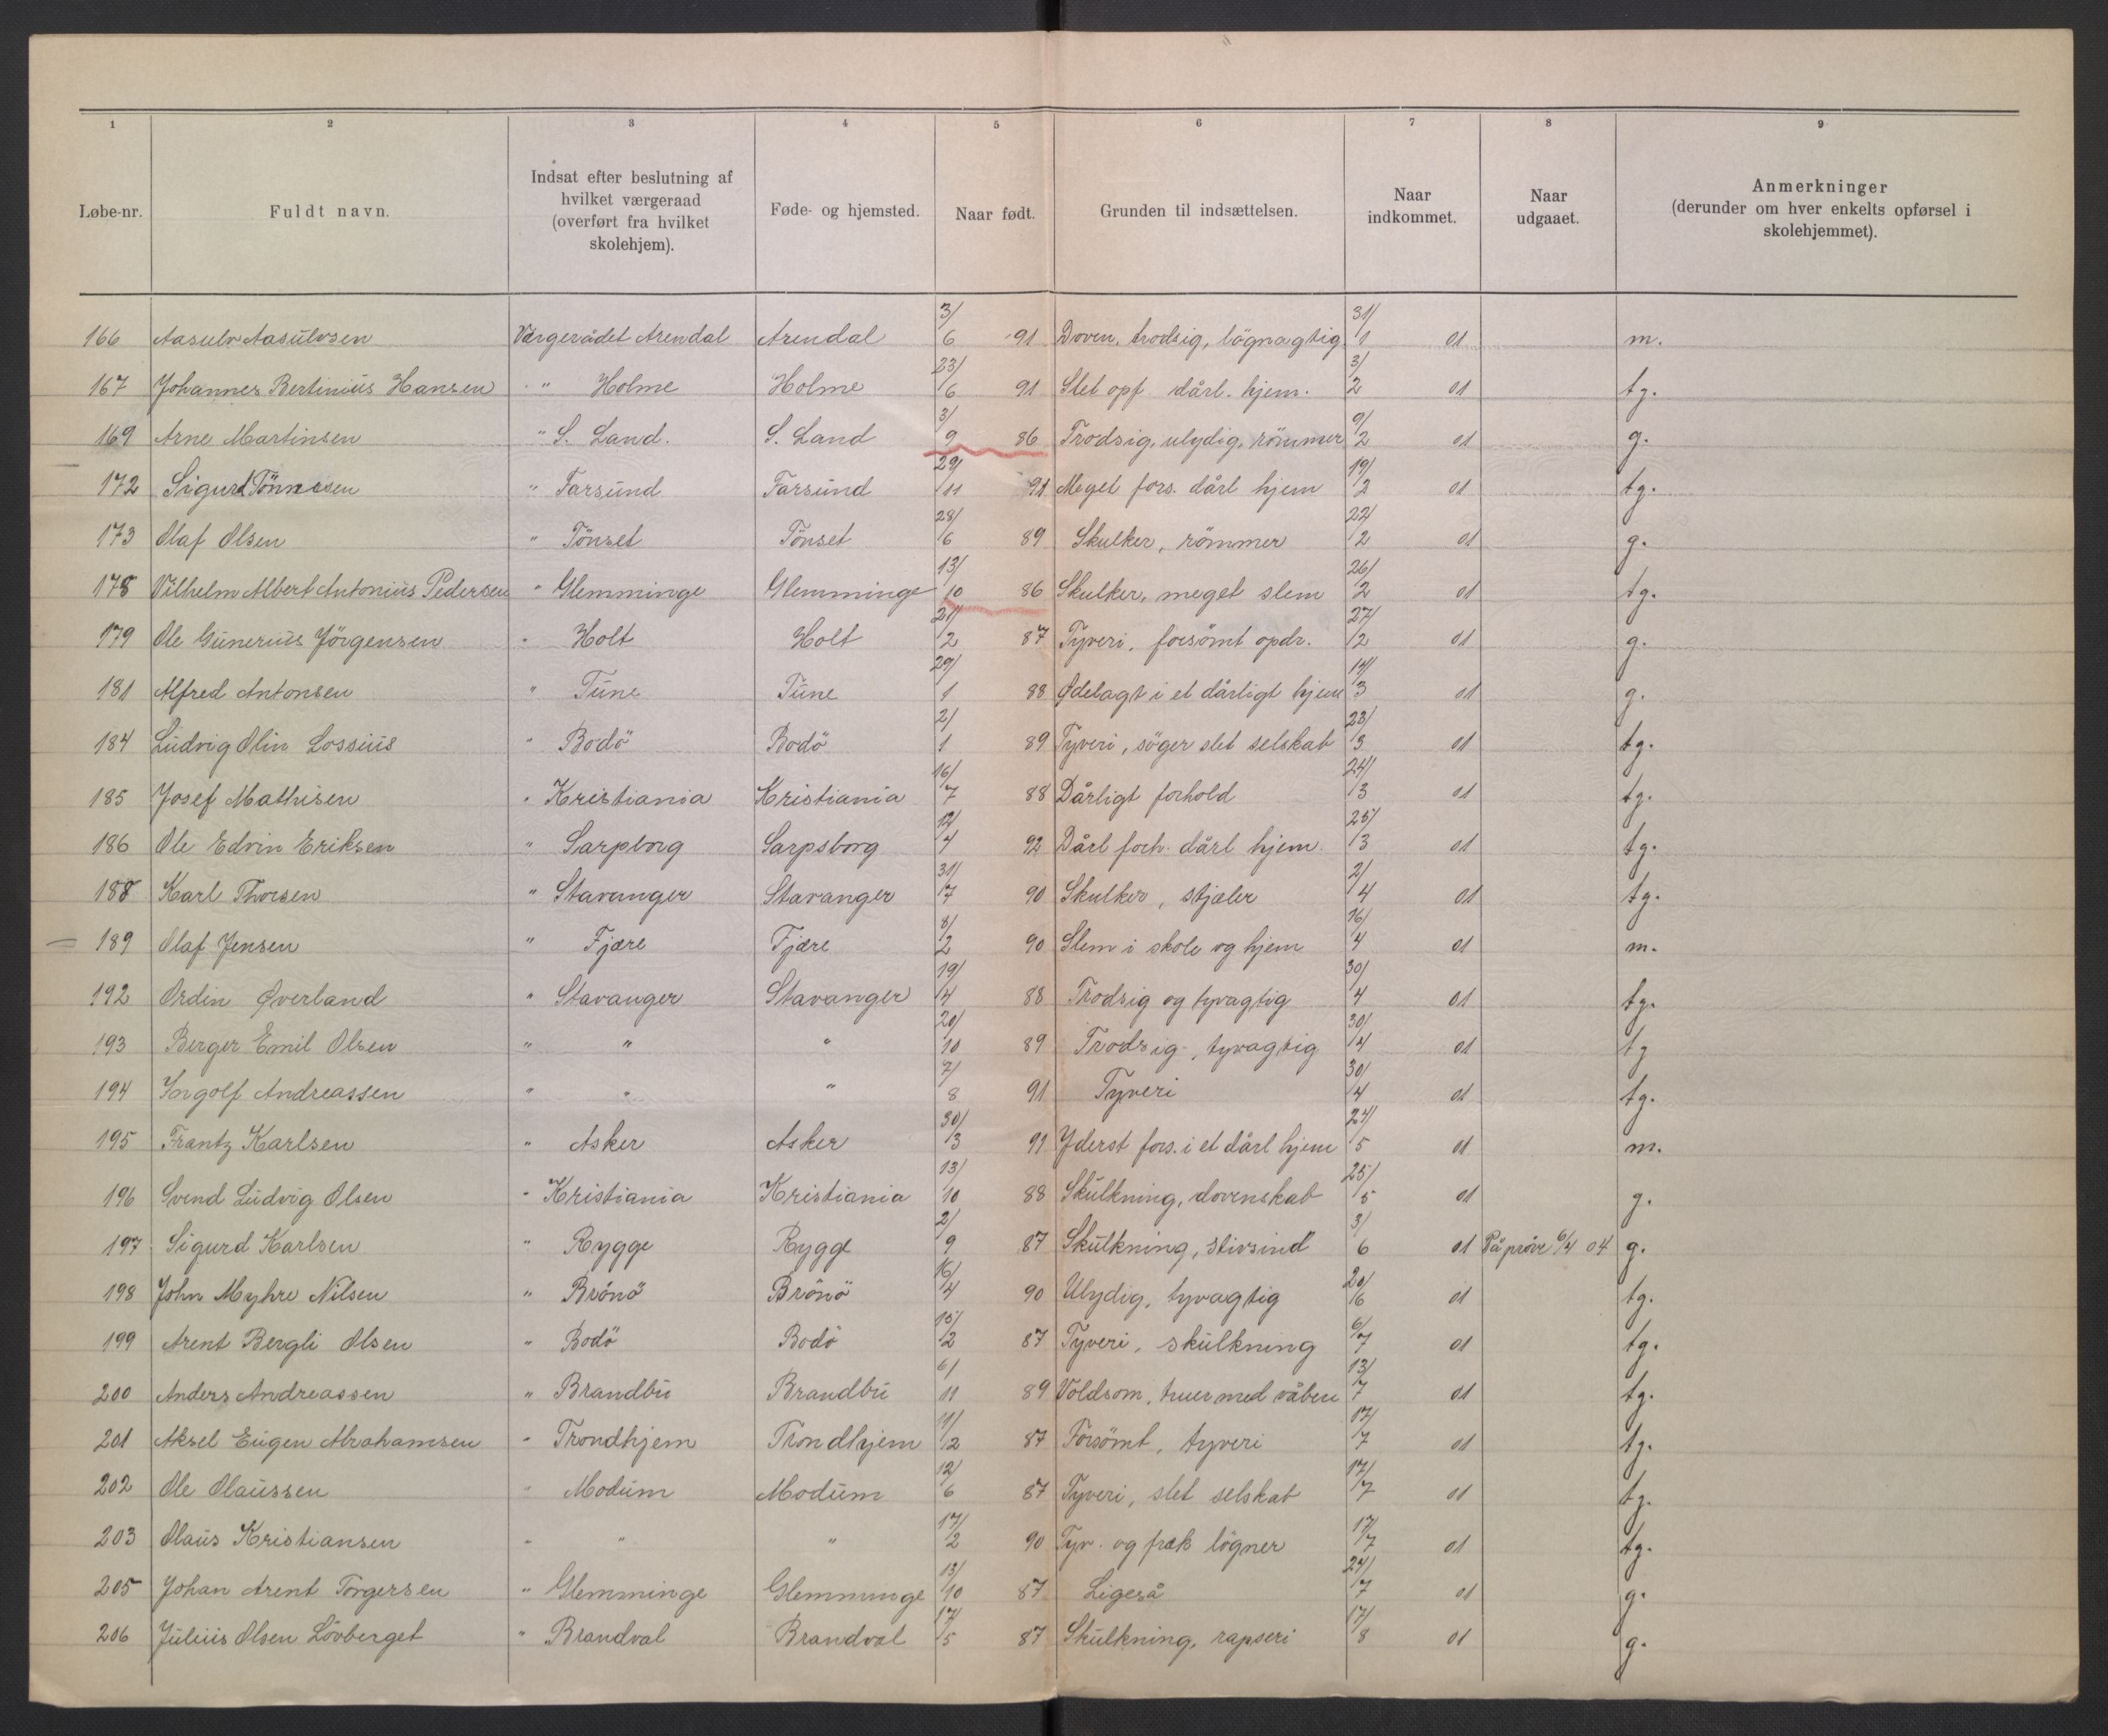 1 2 3 4 5 6 7 8 9
Løbe-nr. Fuldt navn. Indsat efter beslutning af hvilket værgeraad (overført fra hvilket skolehjem). Føde- og hjemsted. Naar født. Grunden til indsættelsen. Naar indkommet. Naar udgaaet. Anmerkninger (derunder om hver enkelts opførsel i skolehjemmet).
166 Aasulv Aasulvsen Værgerådet Arendal Arendal 3/6 91 Doven, trodsig, lögnagtig 31/1 01 m.
167 Johannes Bertinius Hansen " Holme Holme 23/6 91 Slet opf. dårl. hjem. 3/2 01 tg.
169 Arne Martinsen " S. Land. S. Land 3/9 86 Trodsig, ulydig, römmer 9/2 01 g.
172 Sigurd Tönnesen " Farsund Farsund 29/11 91 Meget fors. dårl hjem 19/2 01 tg.
173 Olaf Olsen " Tönset Tönset 28/6 89 Skulker, römmer 22/2 01 g.
178 Vilhelm Albert Antonius Pedersen " Glemminge Glemminge 13/10 86 Skulker, meget slem 26/2 01 tg.
179 Ole Gunerius Jörgensen " Holt Holt 21/2 87 Tyveri, forsömt opdr. 27/2 01 g.
181 Alfred Antonsen " Tune Tune 29/1 88 Ødelagt i et dårligt hjem 14/3 01 g.
184 Ludvig Olin Lossius " Bodö Bodö 2/1 89 Tyveri, söger slet selskab 23/3 01 tg.
185 Josef Mathisen " Kristiania Kristiania 16/7 88 Dårligt forhold 24/3 01 tg.
186 Ole Edvin Eriksen " Sarpborg Sarpsborg 12/4 92 Dårl forh. dårl hjem. 25/3 01 tg.
188 Karl Thorsen " Stavanger Stavanger 31/7 90 Skulker, stjæler 2/4 01 tg.
189 Olaf Jensen " Fjære Fjære 8/2 90 Slem i skole og hjem 16/4 01 m.
192 Ordin Øverland " Stavanger Stavanger 19/4 88 Trodsig og tyvagtig 30/4 01 tg.
193 Berger Emil Olsen " " " 20/10 89 Trodsig, tyvagtig 30/4 01 tg
194 Ingolf Andreassen " " " 7/8 91 Tyveri 30/4 01 tg.
195 Frantz Karlsen " Asker Asker 30/3 91 Yderst fors. i et dårl hjem 24/5 01 m.
196 Svend Ludvig Olsen " Kristiania Kristiania 13/10 88 Skulkning, dovenskab 25/5 01 g.
197 Sigurd Karlsen " Rygge Rygge 2/9 87 Skulkning, stivsind 3/6 01 På pröve 6/4 04 g.
198 John Myhre Nilsen " Brönö Brönö 16/4 90 Ulydig, tyvagtig 20/6 01 tg.
199 Arent Bergli Olsen " Bodö Bodö 15/2 87 Tyveri, skulkning 6/7 01 tg.
200 Anders Andreassen " Brandbu Brandbu 6/11 89 Voldsom, truer med våben 13/7 01 tg.
201 Aksel Eugen Abrahamsen " Trondhjem Trondhjem 11/12 87 Forsömt, tyveri 17/7 01 tg.
202 Ole Olaussen " Modum Modum 12/6 87 Tyveri, slet selskab 17/7 01 tg.
203 Olaus Kristiansen " " " 17/2 90 Tyv. og fræk lögner 17/7 01 tg.
205 Johan Arent Torgersen " Glemminge Glemminge 13/10 87 Ligeså 24/7 01 g.
206 Julius Olsen Lövberget " Brandval Brandval 17/5 87 Skulkning, rapseri 17/8 01 g.